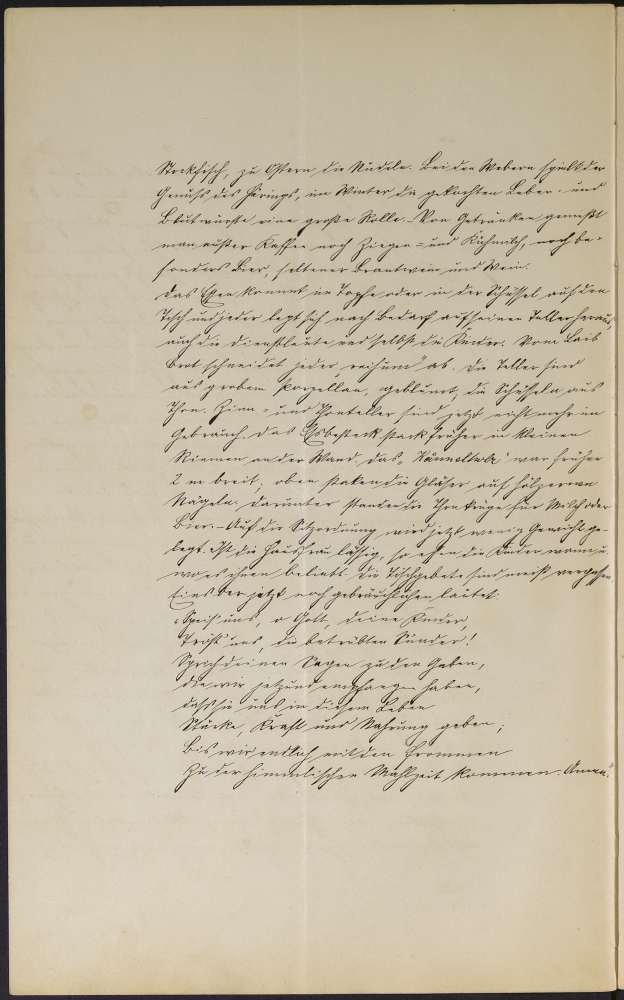 Stockfisch, zu Ostern die Nudeln. Bei den Webern spielt der
Genuss des Härings, im Winter die gekochten Leber- und
Blutwürste eine große Rolle. - Von Getränken genießt
man außer Kaffee noch Ziegen- und Kuhmilch, noch be-
sonders Bier, seltener Brantwein und Wein.
Das Essen kommt im Topfe oder in der Schüssel auf den
Tisch und jeder legt sich nach Bedarf auf seinen Teller heraus,
auch die Dienstleute und selbst die Kinder. Vom Laib
Brot schneidet jeder „reihum“ ab. Die Teller sind
aus grobem Porzellan, geblümt, die Schüsseln aus
Thon. Zinn- und Thonteller sind jetzt nicht mehr im
Gebrauch. Das Essbesteck stack früher in kleinen
Riemen an der Wand. Das war früher
2 m breit; oben staken die Gläser auf hölzernen
Nägeln. Darunter standen die Thonkrüge für Milch oder
Bier. - Auf die Sitzordnung wird jetzt wenig Gewicht ge-
legt. Ist die Hausfrau lässig, so essen die Kinder wann u.
wo es ihnen beliebt. Die Tischgebete sind meist vergessen
Eines der jetzt noch gebräuchlichen lautet:
„Speis' uns, o Gott, deine Kinder,
Tröst' uns, die betrübten Sünder!
Sprich deinen Segen zu den Gaben,
die wir jetzund empfangen haben,
dass sie uns in diesem Leben
Stärke, Kraft und Nahrung geben;
Bis wir endlich mit den Frommen
Zu der himmlischen Mahlzeit kommen. Amen."